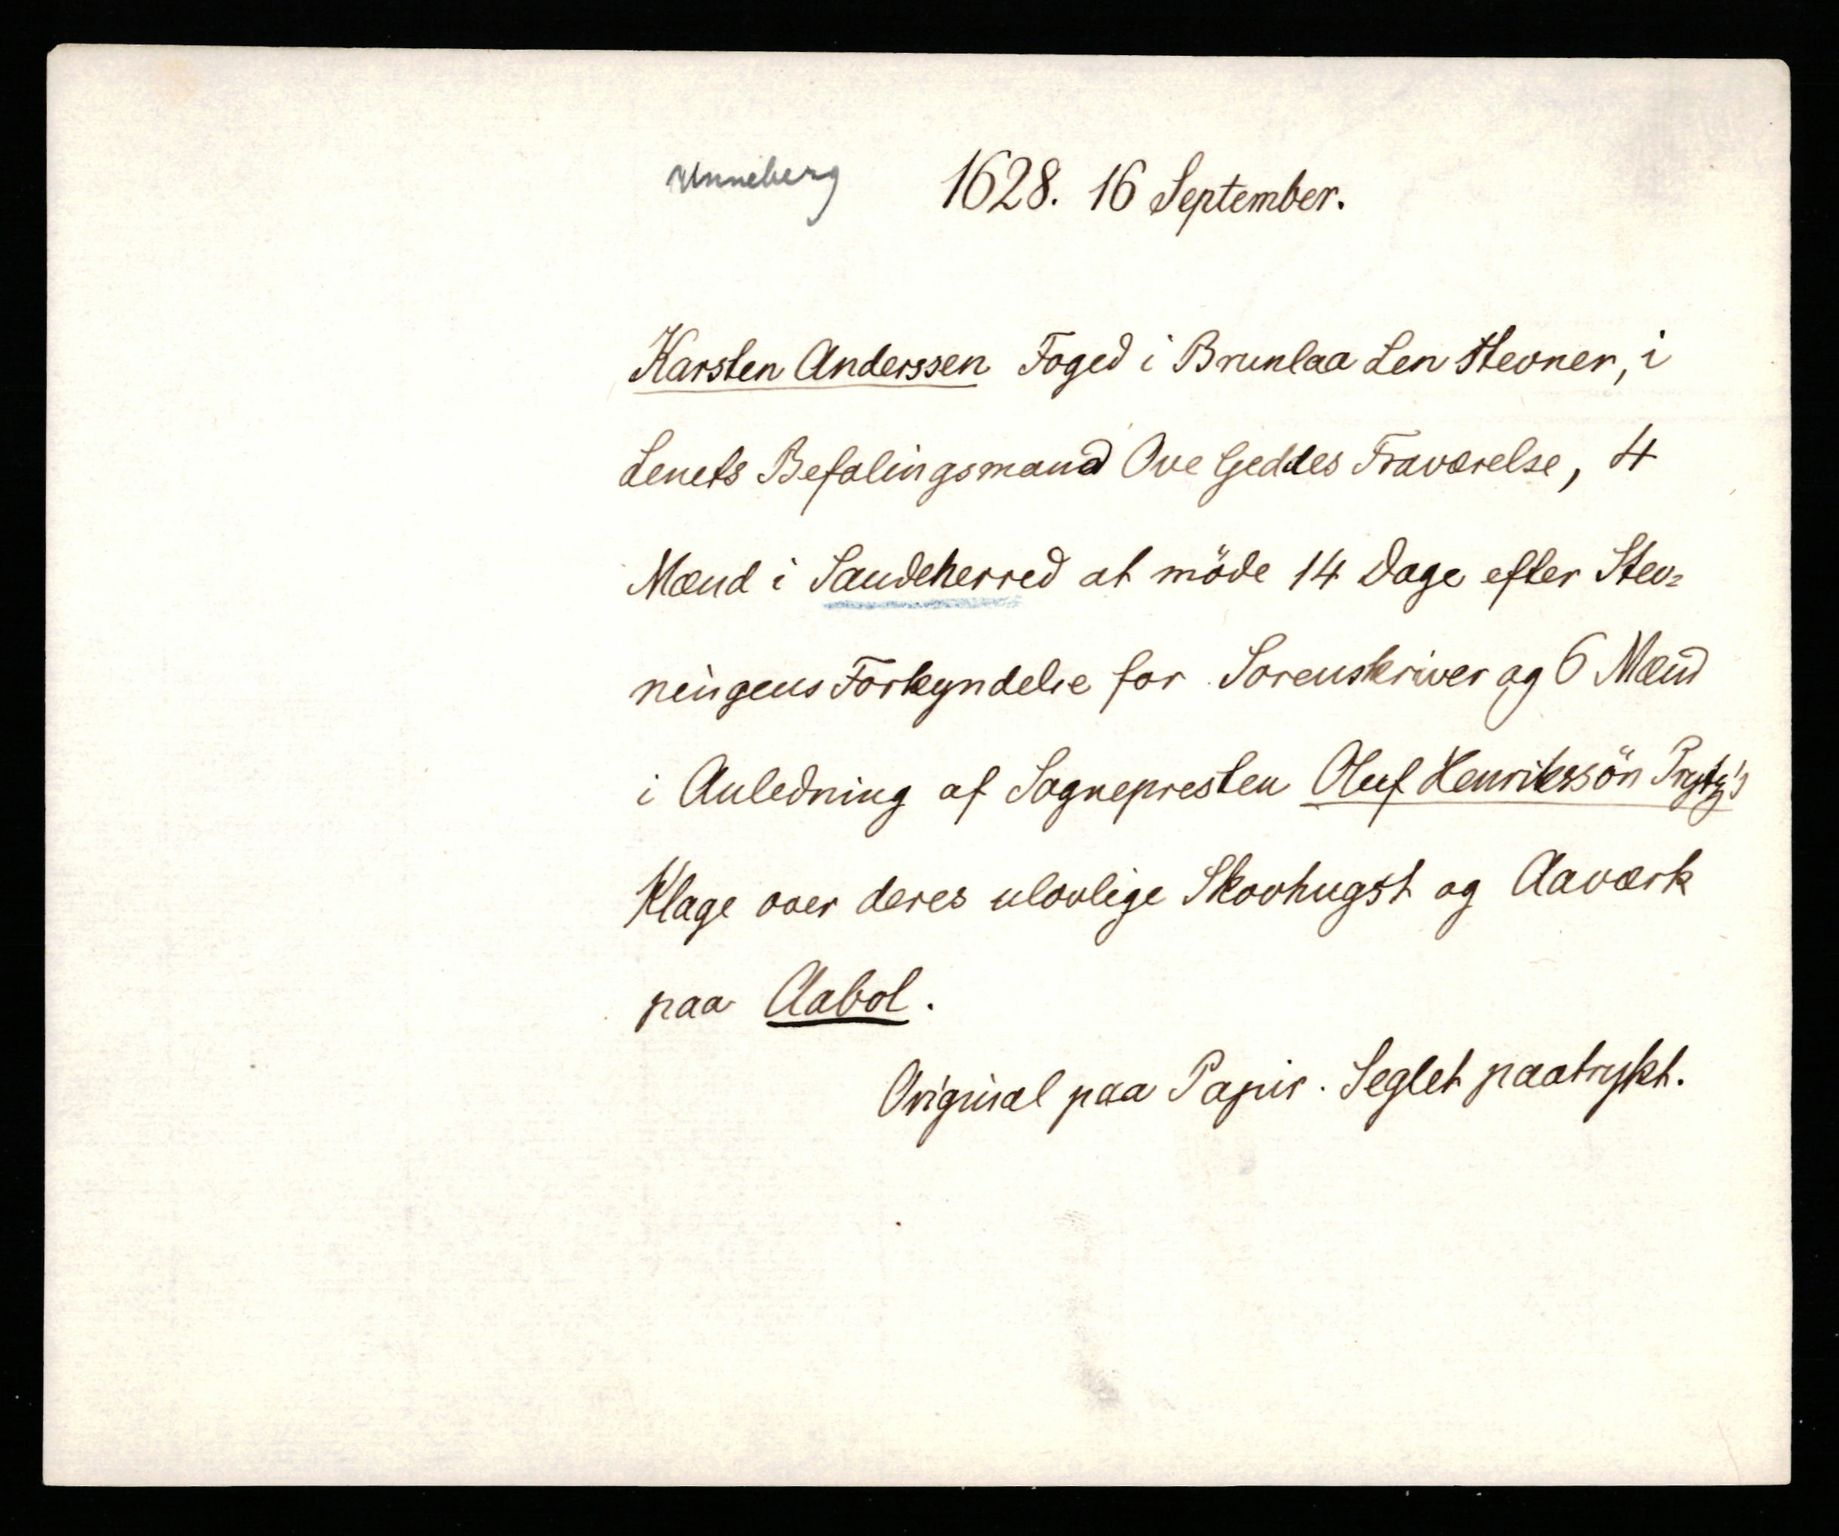 Unneberg 1628. 16 September.
Karsten Anderssen Foged i Brunlaa Len stevner, i
Lenets Befalingsmand Ove Geddes Fraværelse, 4
Mænd i Sandeherred at möde 14 Dage efter Stev=
ningens Forkyndelse for Sorenskriver og 6 Mænd
i Anledning af Sognepresten Oluf Henrikssön Prytz's
Klage over deres ulovlige Skovhugst og Aaværk
paa Aabol.
Original paa Papir. Seglet paatrykt.